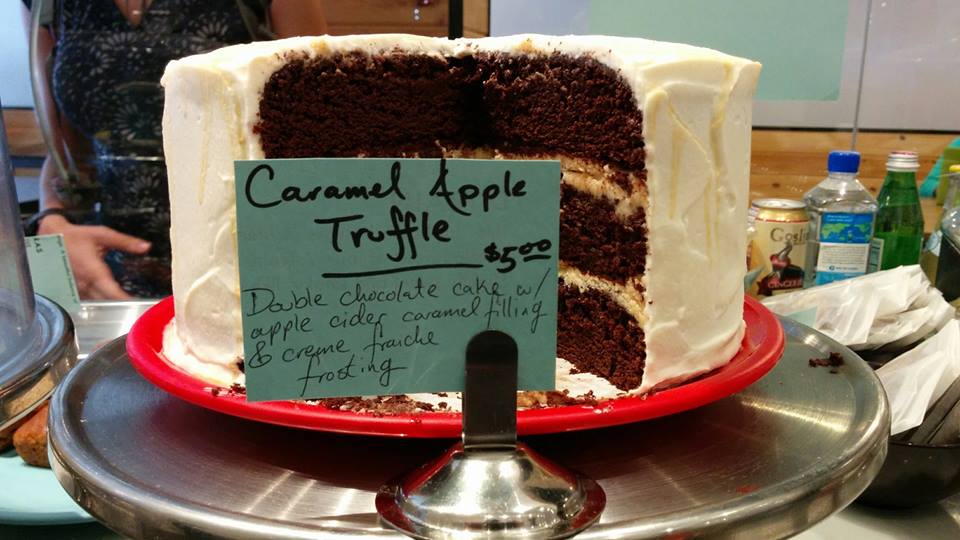 Caramel Apple
Truffle
$5.00
Double chocolate cake w/
apple cider caramel filling
& creme fraiche
frosting